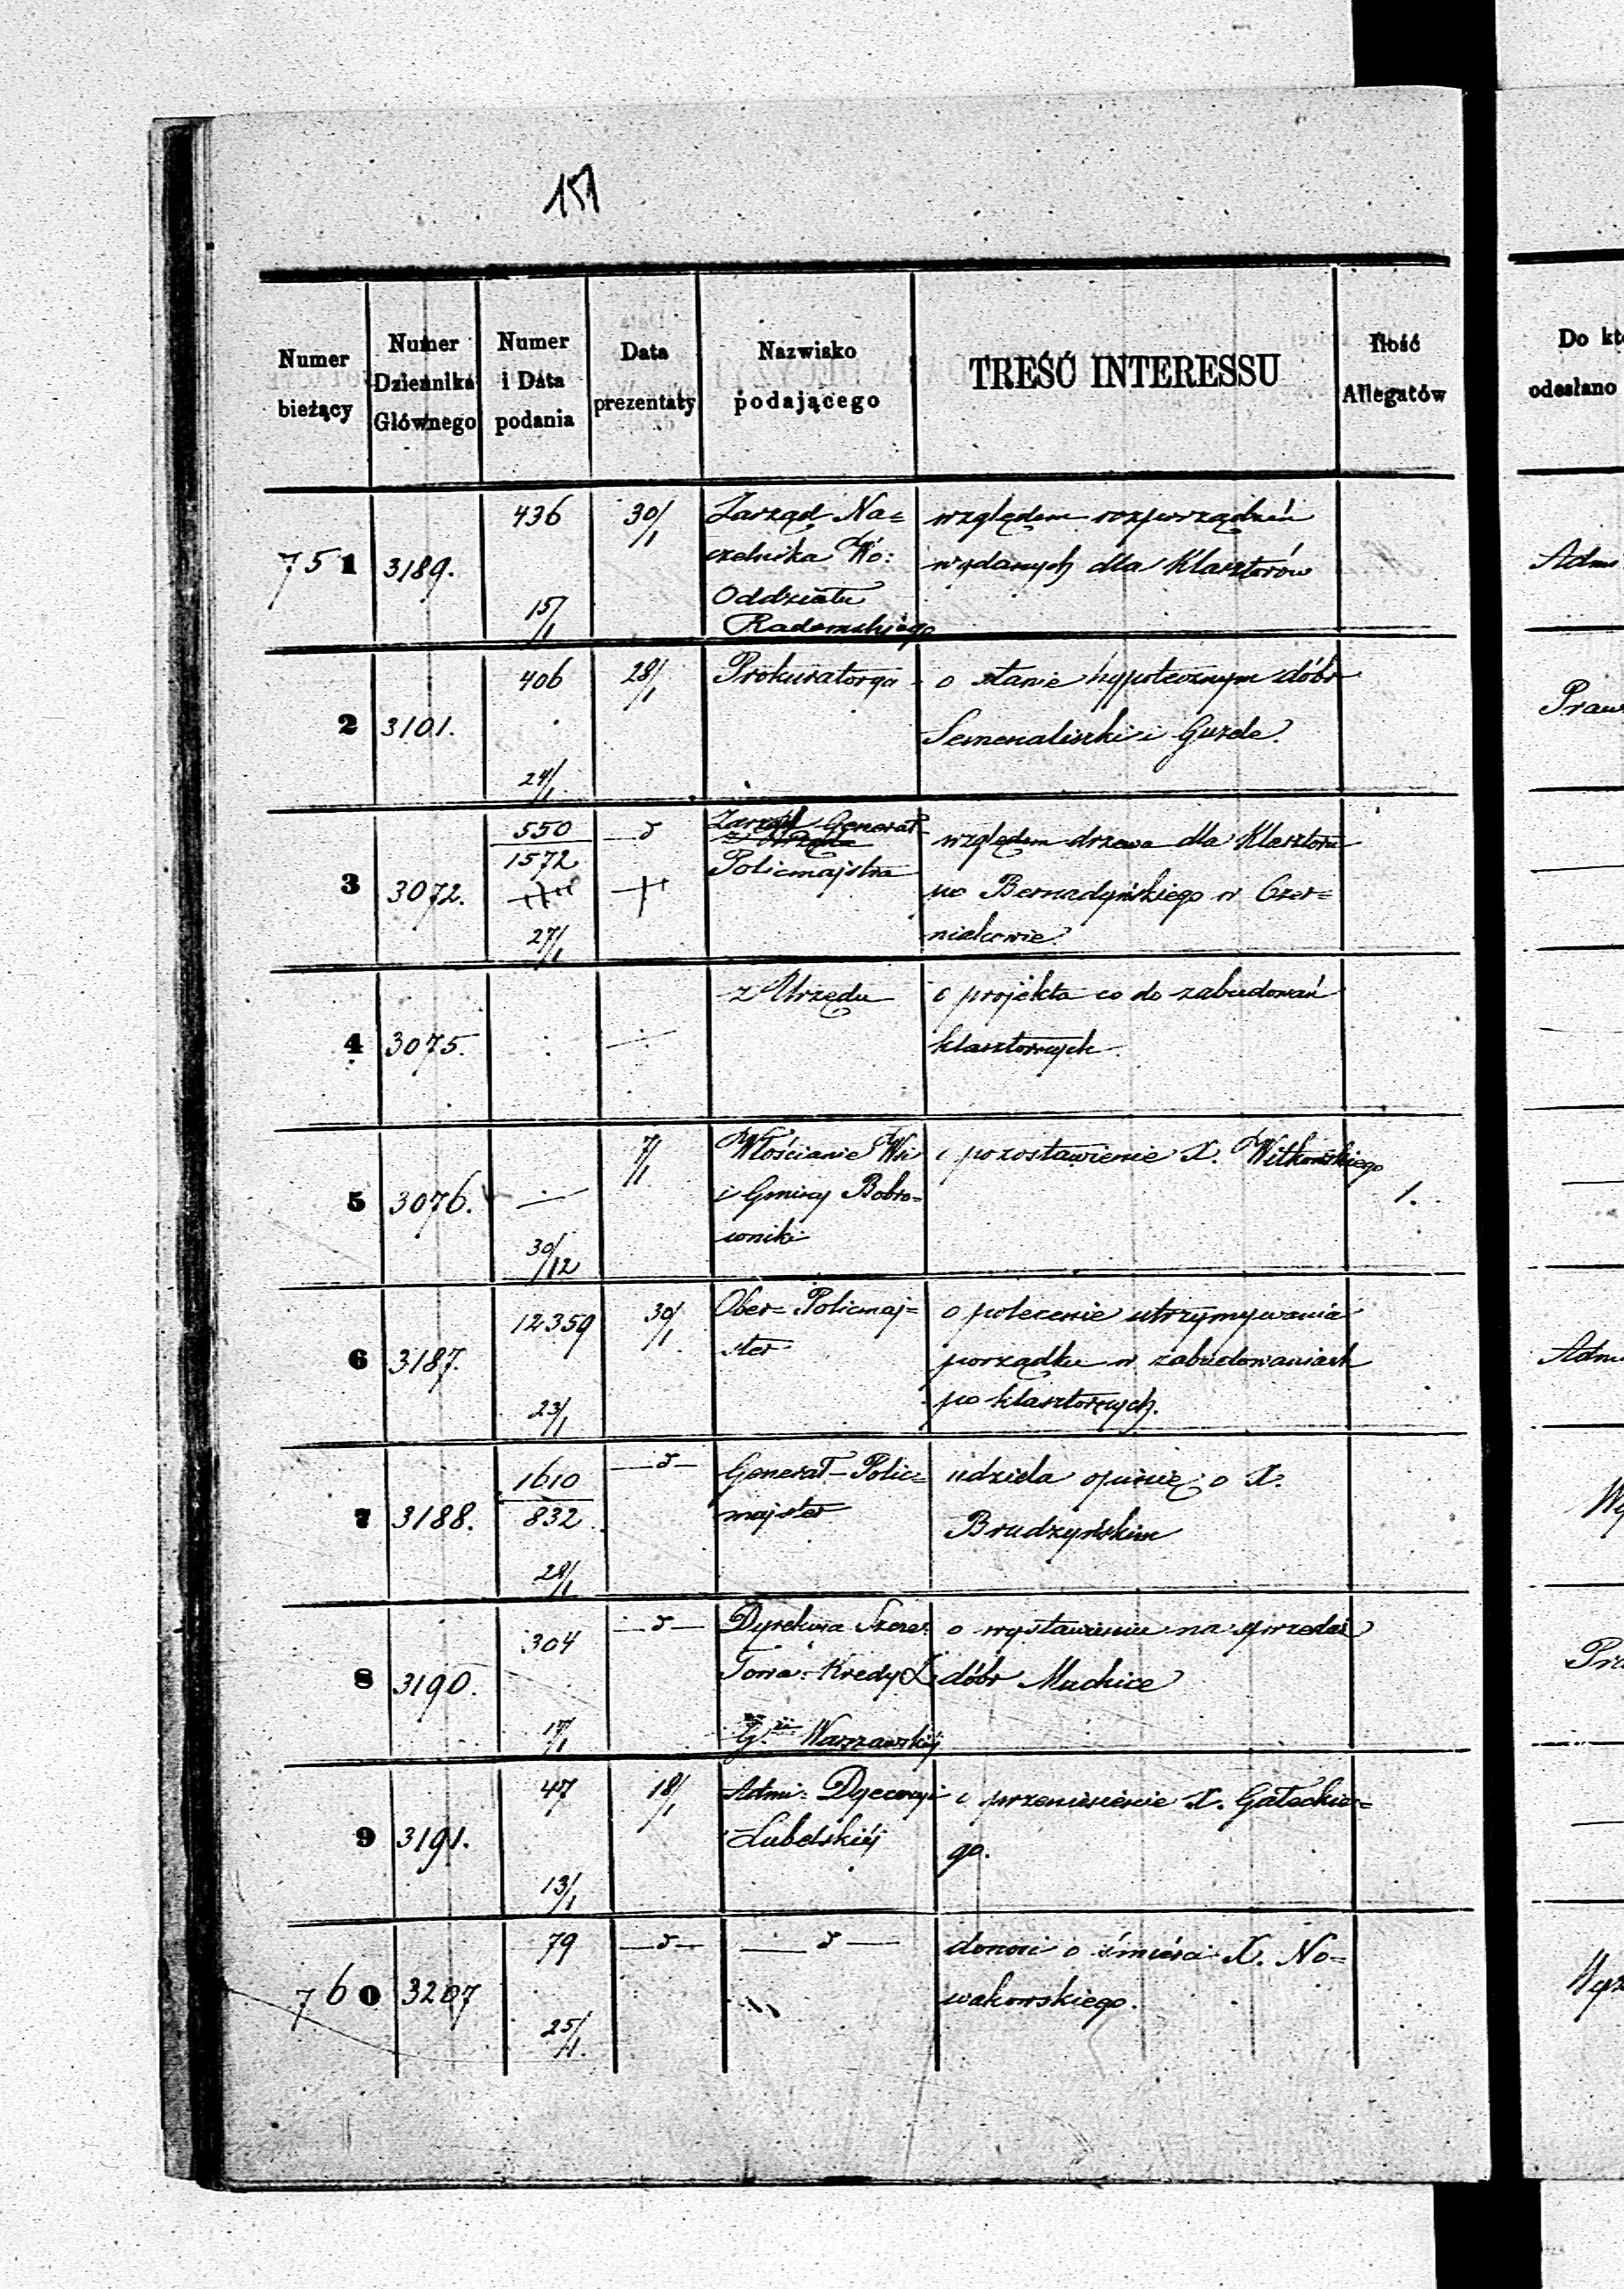 151
Numer bieżący | Numer Dziennika Głównego | Numer i Data podania | Data prezentaty | Nazwisko podającego | TREŚĆ INTERESSU | Ilość Allegatów | Do kt
odesłano
436 30/1 Zarząd Na= względem rozporządzeń
751 3189. czelnika Wo: wydanych dla Klasztorów Adm
15/1 Oddziału
Radomskiego
406 28/1 Prokuratorya o stanie hypotecznym dóbr Praw
2 3101. i Guzele.
24/1
550 —d Zarząd Generał
1572 Policmajstra względem drzewa dla Klasztoru
3 3072. po Bernadyńskiego w Czer=
27/1 niakowie
z Urzędu o projekta co do zabudowań
4 3075. klasztornych
7/1 Włościanie Wsi o pozostawienie X. Witkowskiego
5 3076. i Gminy Bobro= 1.
30/12 wniki
12359 30/1 Ober= Policmaj= o polecenie utrzymywania
6 3187. ster porządku w zabudowaniach Adm
23/1 po klasztornych.
1610 —d— Generał-Polic= udziela opinię o X.
7 3188. 832 majster Brudzyńskim Wy
28/1
304 —d— Dyrekcya Szcze: o wystawieniu na sprzedaż
8 3190. Towa: Kredy Z dóbr Pra
17/1 G. Warszawskiéj
47 18/1 Admi: Dyecezyi o przeniesienie X. Gałeckie=
9 3191. Lubelskiéj go.
13/1
79 —d— —d— donosi o śmierci X. No=
760 3207 wakowskiego. Wyz
25/1.